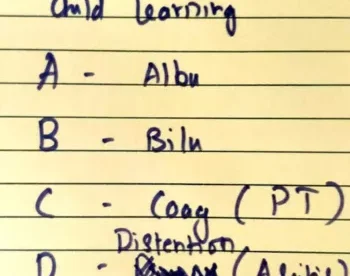 Child Learning
A - Albu
B - Bilu
C - Coag (PT)
Distention
D - (Ascitis)